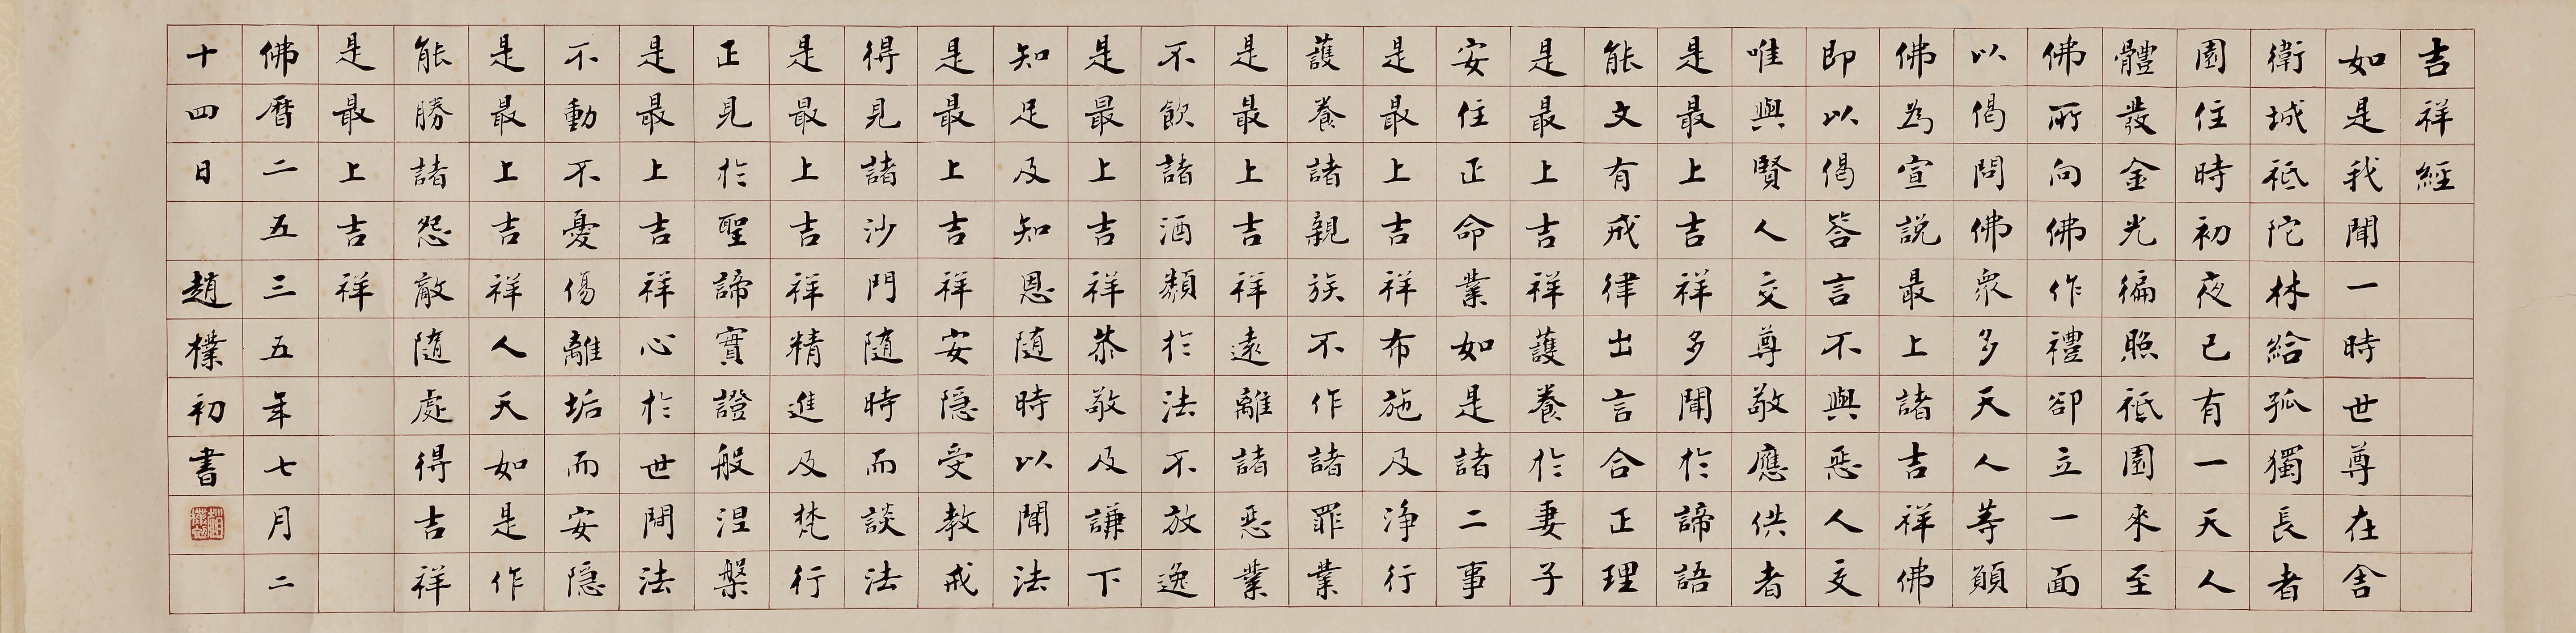 吉祥經
如是我聞一時世尊在舍
衛城祇陀林給孤獨長者
園住時初夜已有一天人
體發金光徧照祇園來至
佛所向佛作禮卻立一面
以偈問佛衆多天人等願
佛為宣説最上諸吉祥佛
即以偈答言不與惡人交
唯與賢人交尊敬應供者
是最上吉祥多聞於諦語
能文有戒律出言合正理
是最上吉祥護養於妻子
安住正命業如是諸二事
是最上吉祥布施及淨行
護養諸親族不作諸罪業
是最上吉祥遠離諸惡業
不飲諸酒類於法不放逸
是最上吉祥恭敬及謙下
知足及知恩隨時以聞法
是最上吉祥安隱受教戒
得見諸沙門隨時而談法
是最上吉祥精進及梵行
正見於聖諦實證般涅槃
是最上吉祥心於世間法
不動不憂傷離垢而安隱
是最上吉祥人天如是作
能勝諸怨敵隨處得吉祥
是最上吉祥
佛曆二五三五年七月二
十四日 趙樸初書
趙樸初